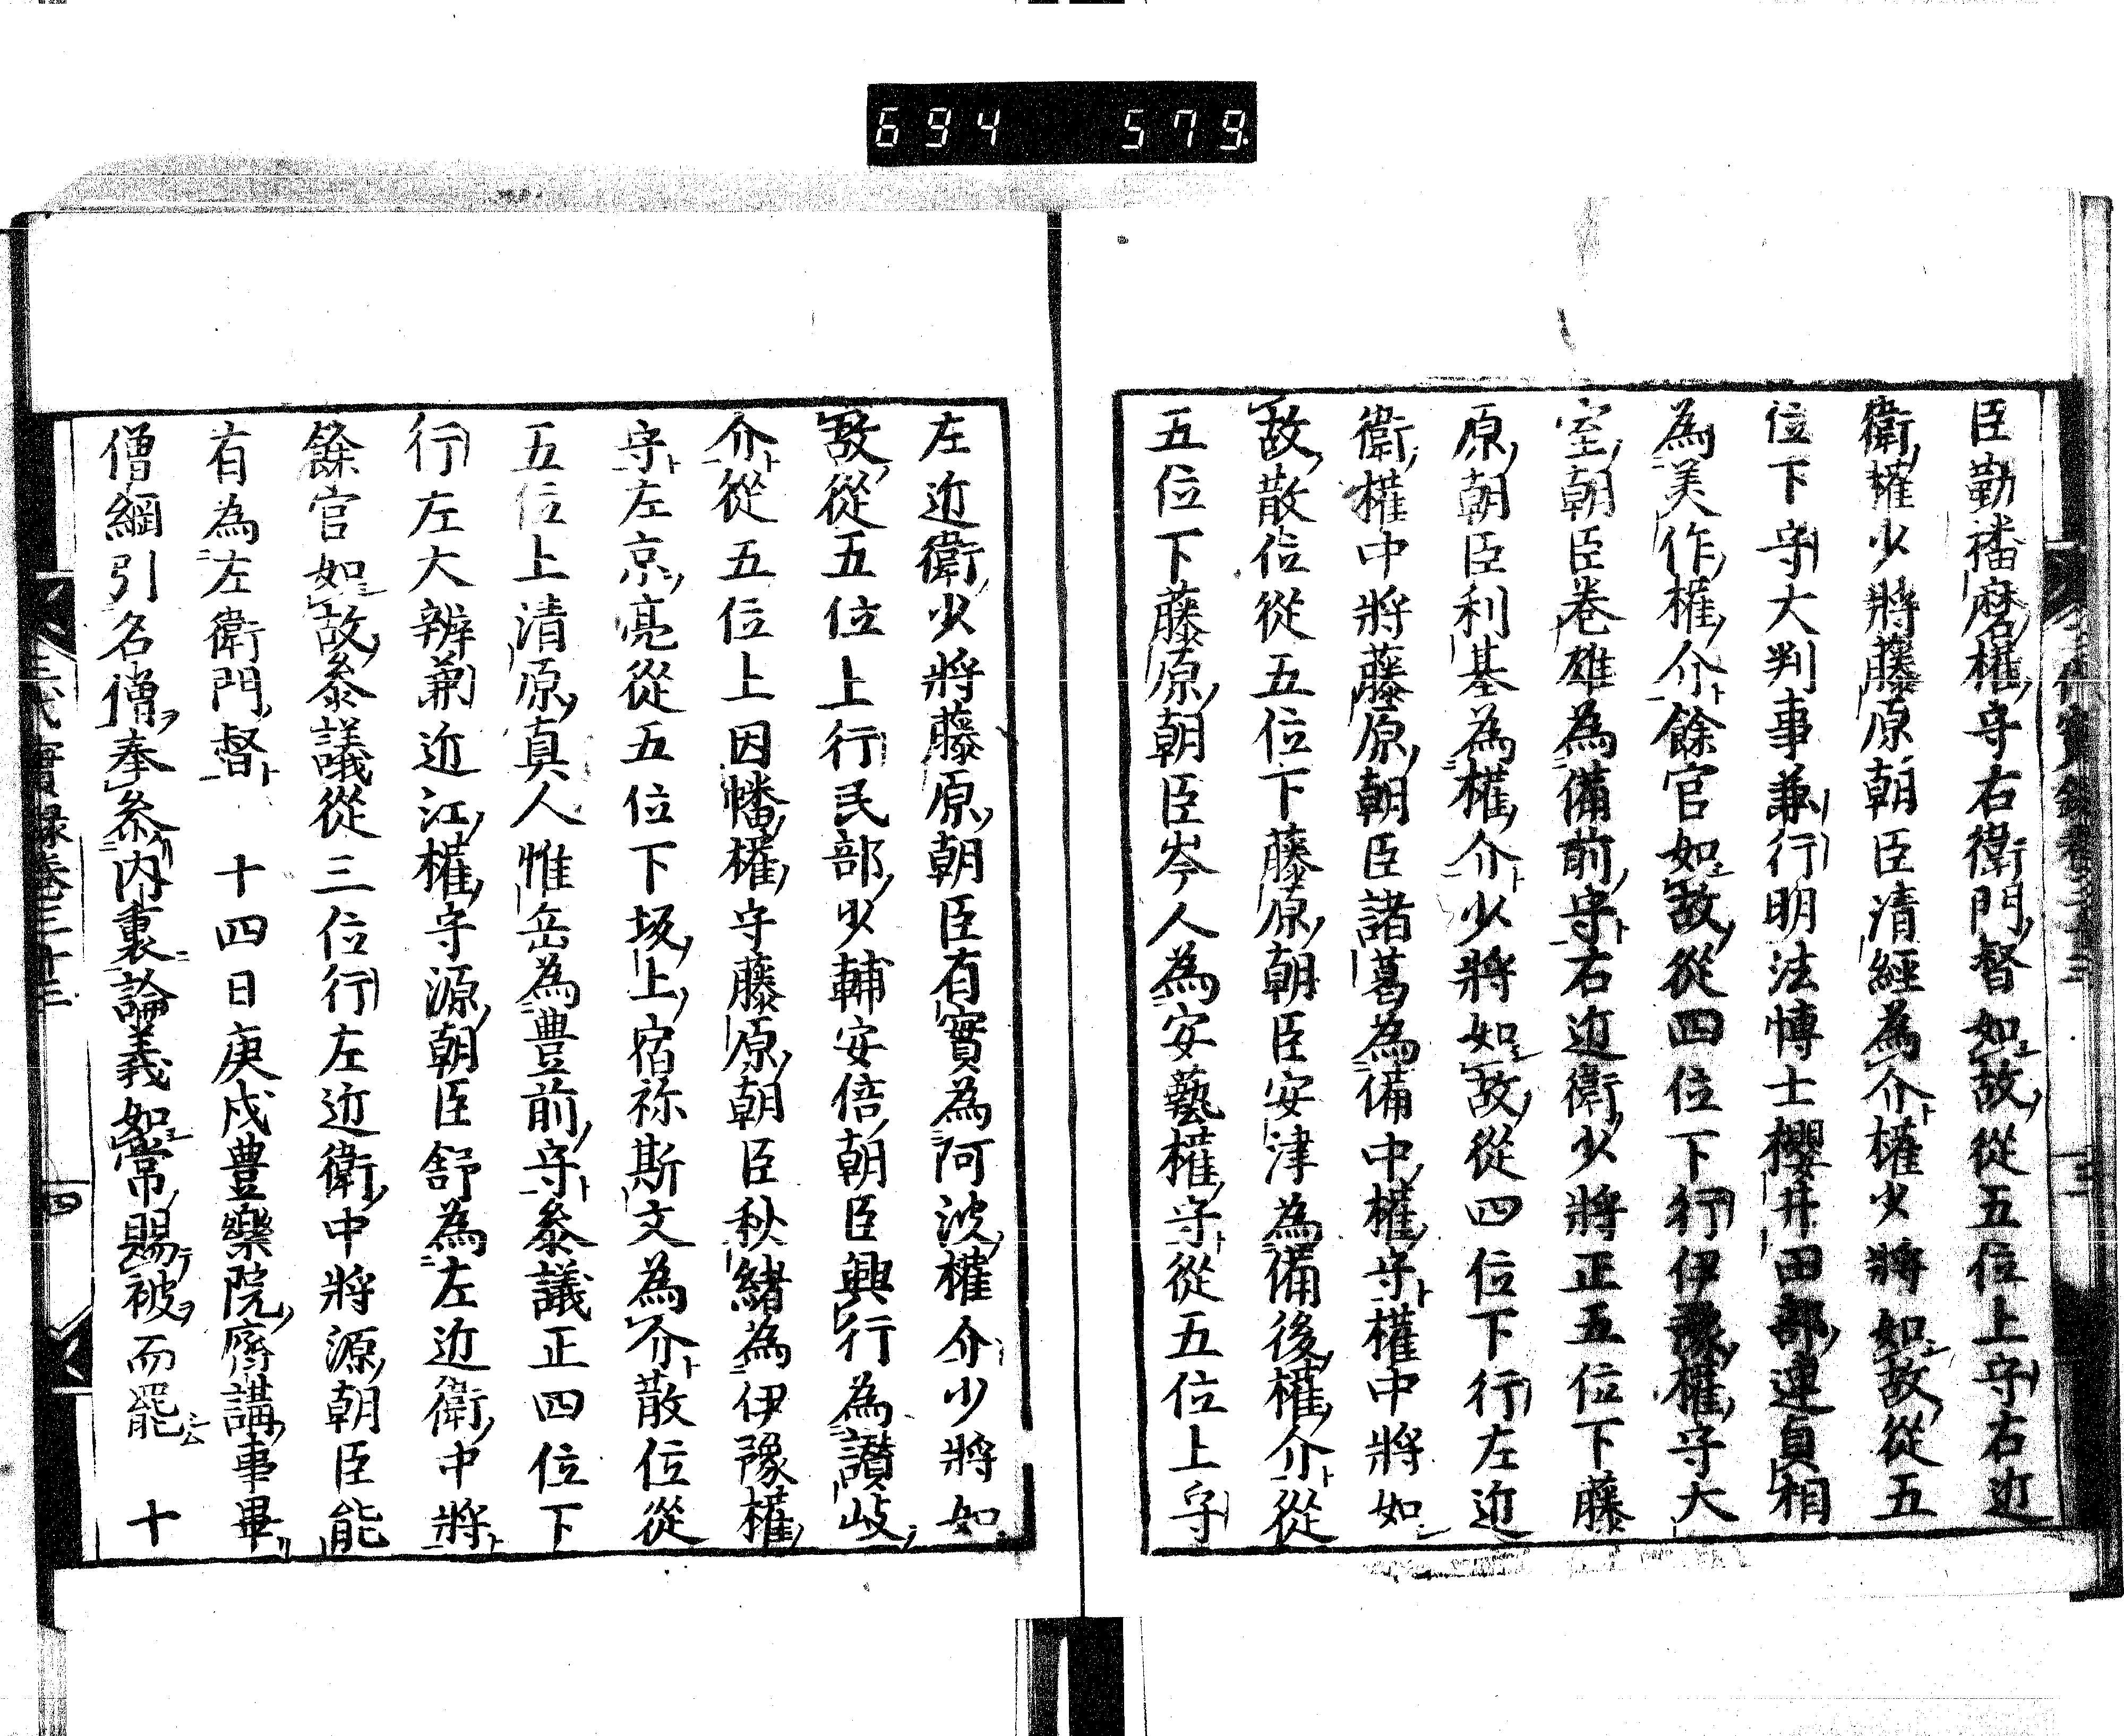 694 579.
臣勤播磨權守右衛門督如故從五位上守右近
衛權少將藤原朝臣清經為介權少將如故從五
位下守大判事兼行明法博士櫻井田部連貞相
為美作權介餘官如故從四位下行伊豫權守大
室朝臣巻雄為備前守右近衛少將正五位下藤
原朝臣利基為權介少將如故從四位下行左近
衛權中將藤原朝臣諸葛為備中權守權中將如
故散位從五位下藤原朝臣安津為備後權介從
五位下藤原朝臣岑人為安藝權守從五位上守
左近衛少將藤原朝臣有實為阿波權介少將如
故從五位上行民部少輔安倍朝臣興行為讃岐
介從五位上因幡權守藤原朝臣秋緒為伊豫權
守左京亮從五位下坂上宿祢斯文為介散位從
五位上清原真人惟岳為豊前守叅議正四位下
行左大辨兼近江權守源朝臣舒為左近衛中將
餘官如故叅議從三位行左近衛中將源朝臣能
有為左衛門督　十四日庚戌豊樂院齋講事畢
僧綱引名僧奉叅內裏論義如常賜被而罷　十
三代實録卷三十三
四